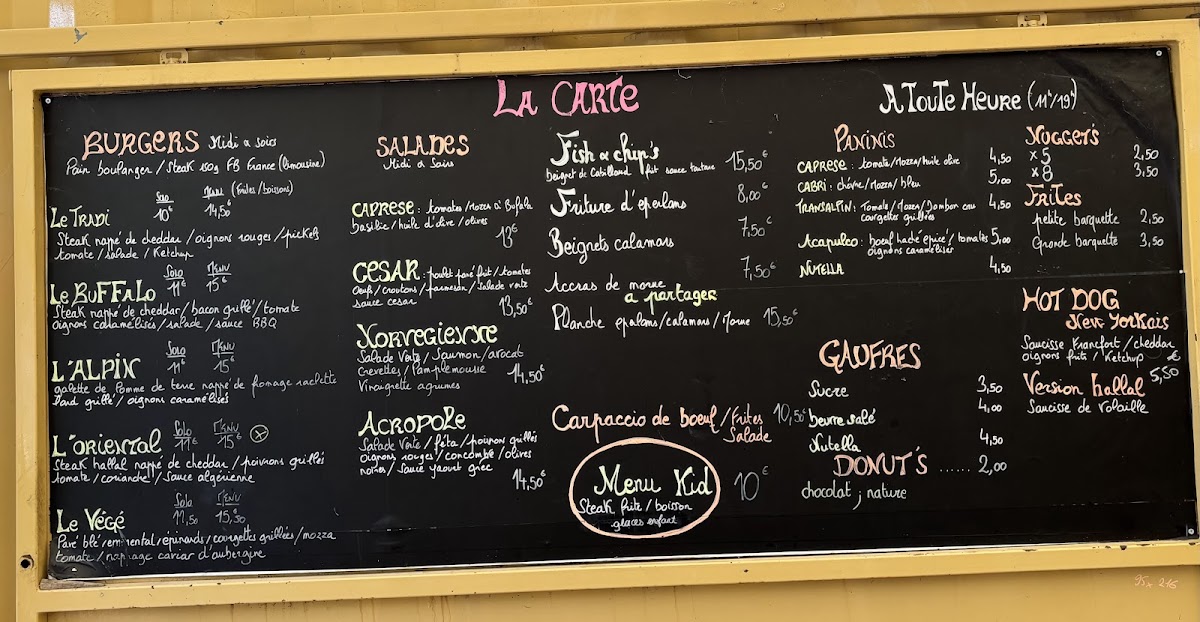 LA CARTE
BURGERS Midi a Soirs
Pain boulanger / Steak 150g FB France (limousine)
Solo Menu (Frites/boissons)
Le Tradi 10€ 14,50€
Steak nappé de cheddar / oignons rouges / pickels
tomate / salade / Ketchup
Solo Menu
Le BUFFALO 11€ 15€
Steak nappé de cheddar / bacon grillé / tomate
oignons caramélisés / salade / sauce BBQ
Solo Menu
L'ALPIN 11€ 15€
galette de Pomme de terre nappé de fromage raclette
Lard grillé / oignons caramélisés
Solo Menu
L'ORIENTAL 11€ 15€
Steak hallal nappé de cheddar / poivrons grillés
tomate / coriandre / Sauce algérienne
Solo Menu
Le Végé 11,50 15,50
Pané blé / emmental / épinards / courgettes grillées / mozza
tomate / nappage caviar d'aubergine
SALADES
Midi a Soirs
CAPRESE : tomates / Mozza di Bufala
basilic / huile d'olive / olives
13€
CESAR : poulet pané frit / tomates
Oeufs / croutons / parmesan / Salade verte
sauce cesar
13,50€
NORVEGIENNE
Salade Verte / Saumon / avocat
Crevettes / Pamplemousse 14,50€
Vinaigrette agrumes
ACROPOLE
Salade Verte / féta / poivrons grillés
oignons rouges / concombre / olives
noires / Sauce yaourt grec
14,50€
Fish & chip's 15,50€
beignet de Cabillaud frit sauce tartare
Friture d'eperlans 8,00€
Beignets calamars 7,50€
Accras de morue 7,50€
a partager
Planche eperlans / calamars / Morue 15,50€
Carpaccio de boeuf / Frites 10,50€
Salade
Menu Kid 10€
Steak frite / boisson
glaces enfant
A TOUTE HEURE (11h/19h)
PANINIS
CAPRESE : tomate / Mozza / huile olive 4,50
CABRI : chèvre / Mozza / bleu 5,00
TRANSALPIN : Tomate / Mozza / Jambon cru 4,50
courgettes grillées
Acapulco : boeuf haché épicé / tomates 5,00
oignons caramélisés
NUTELLA 4,50
GAUFRES
Sucre 3,50
beurre salé 4,00
Nutella 4,50
DONUT'S ...... 2,00
chocolat ; nature
NUGGET'S
x 5 2,50
x 8 3,50
FRITES
petite barquette 2,50
Grande barquette 3,50
HOT DOG
New Yorkais
Saucisse Francfort / cheddar
oignons frits / Ketchup
5,50€
Version hallal
Saucisse de Volaille